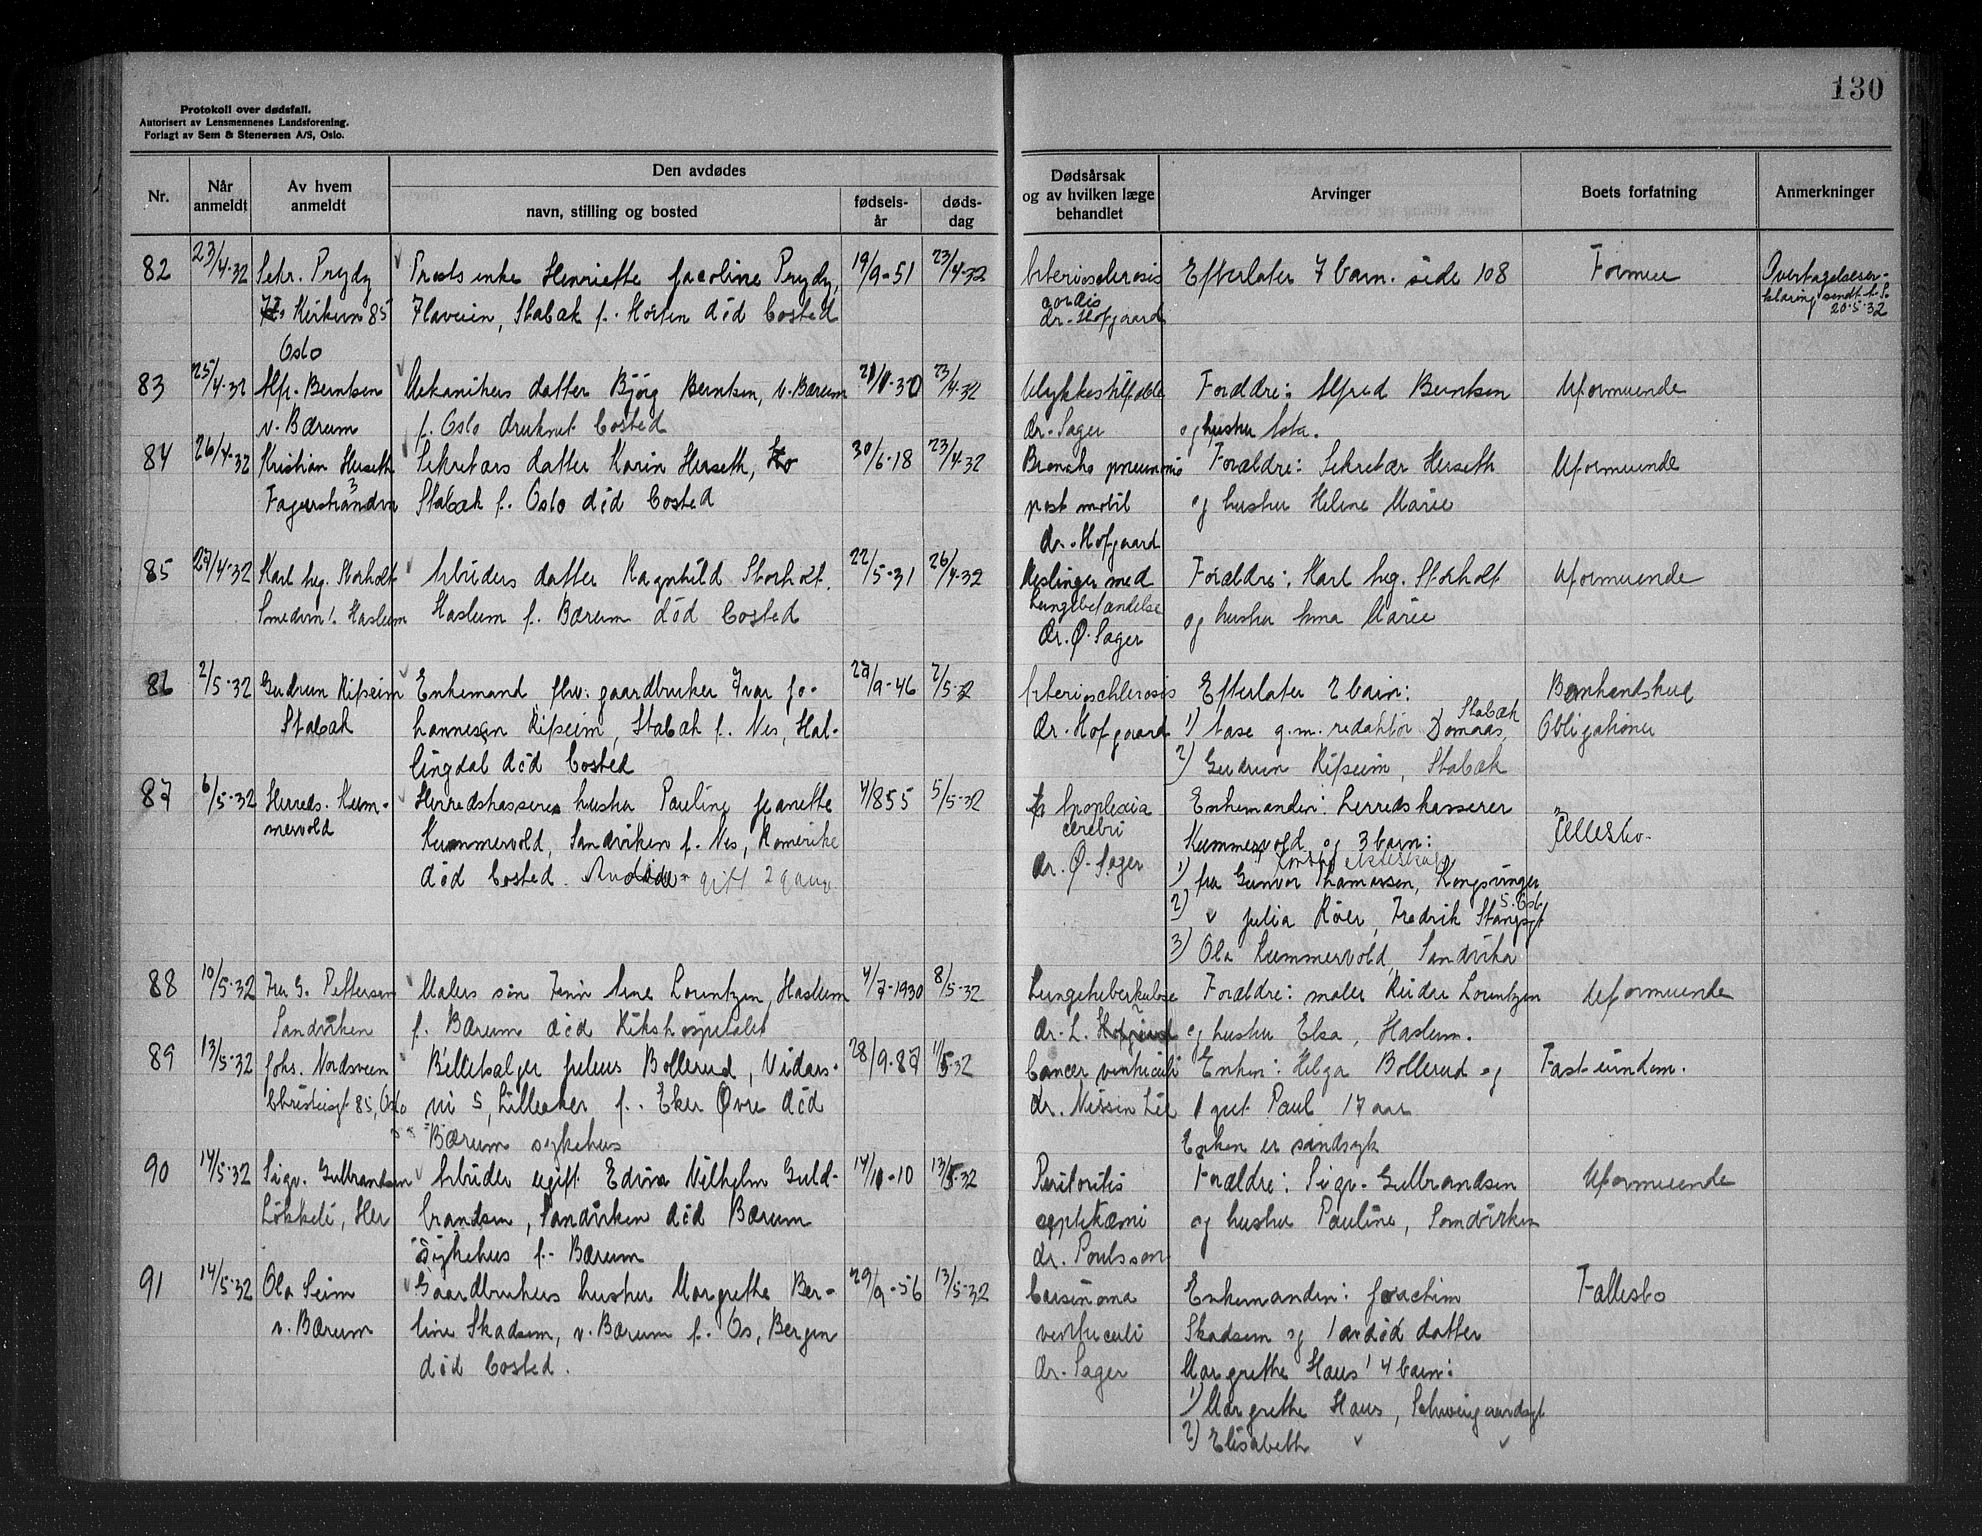 130
Protokoll over dødsfall.
Autorisert av Lensmennenes Landsforening.
Forlagt av Sem & Stenersen A/S, Oslo.
Nr.
Når anmeldt
Av hvem anmeldt
Den avdødes
navn, stilling og bosted
fødsels-år
døds-dag
Dødsårsak og av hvilken læge behandlet
Arvinger
Boets forfatning
Anmerkninger
82 23/4-32 Sekr. Prydz Prosts enke Henriette Jacoline Prydz, 19/9-51 23/4-32 Arteriosclerosis Efterlater 7 barn. side 108 Formue Overtagelseser-
Kirkevn 85 Flaveien, Stabæk f. Horten død bosted cordis klæring sendt
Oslo dr. Hofgaard 20-5-32
83 25/4-32 Alf. Berntsen Mekanikers datter Bjørg Berntsen, v. Bærum 23/4-32 Ulykkestilfælde Forældre: Alfred Berntsen Uformuende
v. Bærum f. Oslo druknet bosted dr. Sager og hustru Asta.
84 26/4-32 Kristian Herseth Sekretærs datter Karin Herseth, 30/6-18 23/4-32 Broncho pneumoni Forældre: Sekretær Herseth Uformuende
Fagerstrandvn 3 Stabæk f. Oslo død bosted post morbil og hustru Helene Marie
dr. Hofgaard
85 27/4-32 Karl Ing. Storholt Arbeiders datter Ragnhild Storholt. 22/5-31 26/4-32 Meslinger med Forældre: Karl Ing. Storholt Uformuende
Smedvn 1. Haslum Haslum f. Bærum død bosted Lungebetændelse og hustru Anna Marie
dr. Ø. Sager
86 2/5-32 Gudrun Ripseim Enkemand fhv. gaardbruker Ivar Jo- 27/9-46 2/5-32 Arterioschlerosis Efterlater 2 barn: Bankindskud
Stabæk hannesen Ripseim, Stabæk f. Nes, Hal- dr. Hofgaard 1) Aase g.m. redaktør Domaas, Stabæk Obligationer
lingdal død bosted 2) Gudrun Ripseim, Stabæk
87 6/5-32 Herreds. Kum- Herredskasserers hustru Pauline Jeanette 4/855 5/5-32 Apoplexia Enkemanden: herredskasserer Fællesbo.
mervold Kummervold, Sandviken f. Nes, Romerike cerebri Kummervold og 3 barn:
død bosted. gift 2 gang dr. Ø. Sager 1) fru Gunvor Thomassen, Kongsvinger
2) " Julia Røer, Fredrik Stangsgt 5. Oslo
3) Ola Kummervold, Sandvika
88 10/5-32 Fru G. Pettersen Malers søn Finn Arne Lorentzen, Haslum 4/7-1930 8/5-32 Lungetuberkulose Forældre: maler Reidar Lorentzen Uformuende
Sandviken f. Bærum død Rikshospitalet dr. L. og hustru Elsa, Haslum.
89 13/5-32 Johs. Nordsveen Billetsælger Julius Bollerud, Vidars- 28/9-87 11/5-32 Cancer ventriculi Enken: Helga Bollerud og Fast eiendom.
Christiesgt 85, Oslo vei 5, Lilleaker f. Eker Øvre død dr. Nissen Lie 1 gut Paul 17 aar
Bærum sykehus Enken er sindsyk
90 14/5-32 Sigv. Gulbrandsen Arbeider ugift Edvin Vilhelm Guld- 14/11-10 13/5-32 Peritoritis Forældre: Sigv. Gulbrandsen Uformuende
Løkkeli, Her brandsen, Sandviken død Bærum septikæmi og hustru Pauline, Sandviken
Sykehus f. Bærum dr. Poulsson
91 14/5-32 Ola Seim Gaardbrukers hustru Margrethe Ber- 29/9-56 13/5-32 Carsinoma Enkemanden: Joachim Fællesbo
v. Bærum line Skadsem, v. Bærum f. Os, Bergen ventriculi Skadsem og 1 avdød datter
død bosted. dr. Sager Margrethe Haus' 4 barn:
1) Margrethe Haus, Schweigaardsgt
2) Elisabeth " "